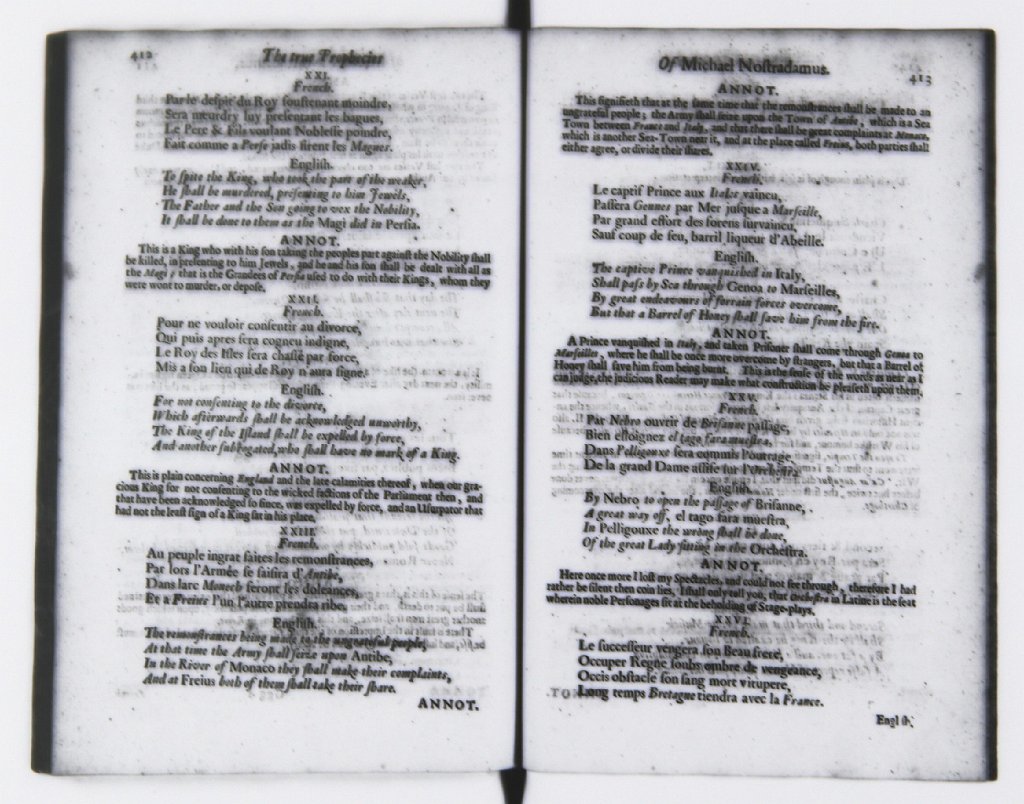 412
The true Prophecies
XXI.
French.
Par le despit du Roy soustenant moindre,
Sera meurdry luy presentant les bagues,
Le Pere & Fils voulant Noblesse poindre,
Fait comme a Perse jadis firent les Magues.
English.
To spite the King, who took the part of the weaker,
He shall be murdered, presenting to him Jewels,
The Father and the Son going to vex the Nobility,
It shall be done to them as the Magi did in Persia.
ANNOT.
This is a King who with his son taking the peoples part against the Nobility shall
be killed, in presenting to him Jewels, and he and his son shall be dealt with all as
the Magi, that is the Grandees of Persia used to do with their Kings, whom they
were wont to murder, or depose.
XXII.
French.
Pour ne vouloir consentir au divorce,
Qui puis apres sera cogneu indigne,
Le Roy des Isles sera chassé par force,
Mis a son lieu qui de Roy n'aura signe.
English.
For not consenting to the divorce,
Which afterwards shall be acknowledged unworthy,
The King of the Island shall be expelled by force,
And another subrogated, who shall have no mark of a King.
ANNOT.
This is plain concerning England and the late calamities thereof, when our gra-
cious King for not consenting to the wicked factions of the Parliament then, and
that have been acknowledged so since, was expelled by force, and an Usurpator that
had not the least sign of a King sat in his place.
XXIII.
French.
Au peuple ingrat faites les remonstrances,
Par lors l'Armée se saisira d'Antibe,
Dans larc Monech feront les doleances,
Et a Freius l'un l'autre prendra ribe.
English.
The remonstrances being made to the ungrateful people,
At that time the Army shall seize upon Antibe,
In the River of Monaco they shall make their complaints,
And at Freius both of them shall take their share.
ANNOT.
Of Michael Nostradamus.
413
ANNOT.
This signifieth that at the same time that the remonstrances shall be made to an
ungrateful people; the Army shall seize upon the Town of Antibe, which is a Sea
Town between France and Italy, and that there shall be great complaints at Monaco
which is another Sea-Town near it, and at the place called Freius, both parties shall
either agree, or divide their shares.
XXIV.
French.
Le captif Prince aux Itales vaincu,
Passera Gennes par Mer jusque a Marseille,
Par grand effort des forens survaincu,
Sauf coup de feu, barril liqueur d'Abeille.
English.
The captive Prince vanquished in Italy,
Shall pass by Sea through Genoa to Marseilles,
By great endeavours of forrain forces overcome,
But that a Barrel of Honey shall save him from the fire.
ANNOT.
A Prince vanquished in Italy, and taken Prisoner shall come through Genoa to
Marseilles, where he shall be once more overcome by strangers, but that a Barrel of
Honey shall save him from being burnt. This is the sense of the words as neir as I
can judge, the judicious Reader may make what construction he pleaseth upon them.
XXV.
French.
Par Nebro ouvrir de Brisanne passage,
Bien esloignez el tago fara muestra,
Dans Pelligouxe sera commis l'outrage,
De la grand Dame assise sur l'Orchestra.
English.
By Nebro to open the passage of Brisanne,
A great way off, el tago fara muestra,
In Pelligouxe the wrong shall be done,
Of the great Lady sitting in the Orchestra.
ANNOT.
Here once more I lost my Spectacles, and could not see through, therefore I had
rather be silent then coin lies, I shall only tell you, that Orchestra in Latine is the seat
wherein noble Personages sit at the beholding of Stage-plays.
XXVI.
French.
Le successeur vengera son Beau frere,
Occuper Regne soubs ombre de vengeance,
Occis obstacle son sang mort vitupere,
Long temps Bretagne tiendra avec la France.